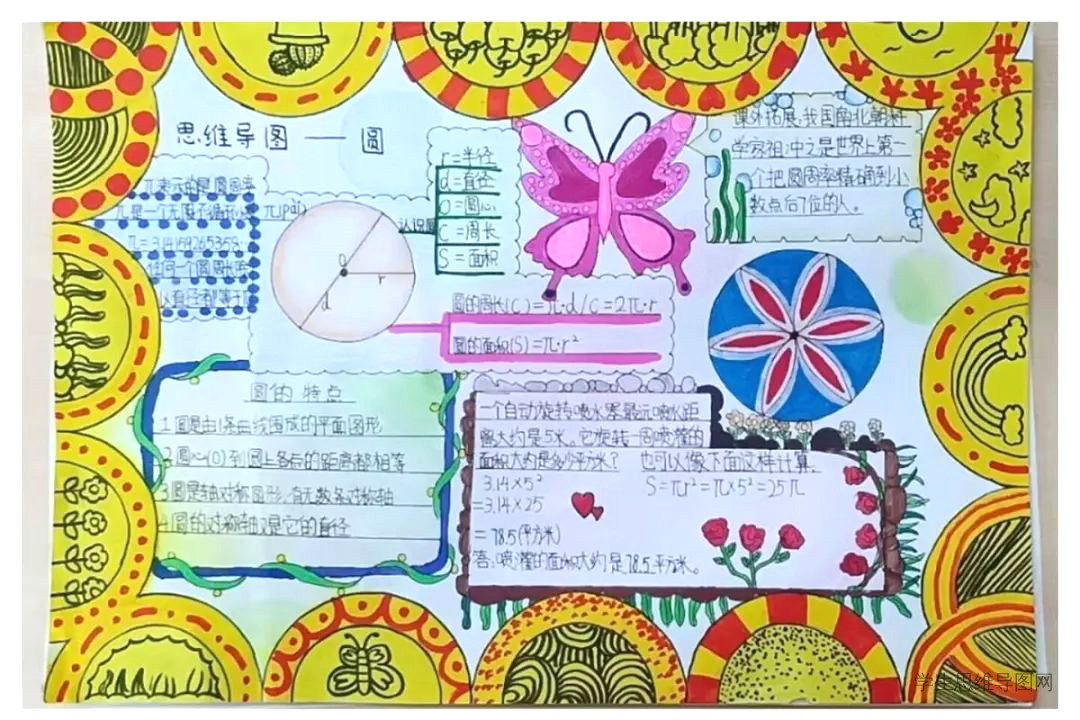 思维导图 — 圆
π表示的是圆周率
π是一个无限不循环小数 π(pài)
π=3.14159265358…
任何一个圆周长
认识圆
O
r
d
r=半径
d=直径
O=圆心
C=周长
S=面积
圆的周长(C)=π·d/C=2π·r
圆的面积(S)=π·r²
课外拓展:我国南北朝数
学家祖冲之是世界上第一
个把圆周率精确到小
数点后7位的人。
圆的特点
1.圆是由1条曲线围成的平面图形
2.圆心(O)到圆上各点的距离都相等
3.圆是轴对称图形,有无数条对称轴
4.圆的对称轴又是它的直径
一个自动旋转喷水器最远喷水距
离大约是5米。它旋转一周喷灌的
面积大约是多少平方米?
3.14×5²
=3.14×25
=78.5(平方米)
答:喷灌的面积大约是78.5平方米。
也可以像下面这样计算.
S=πr²=π×5²=25π
学生思维导图网